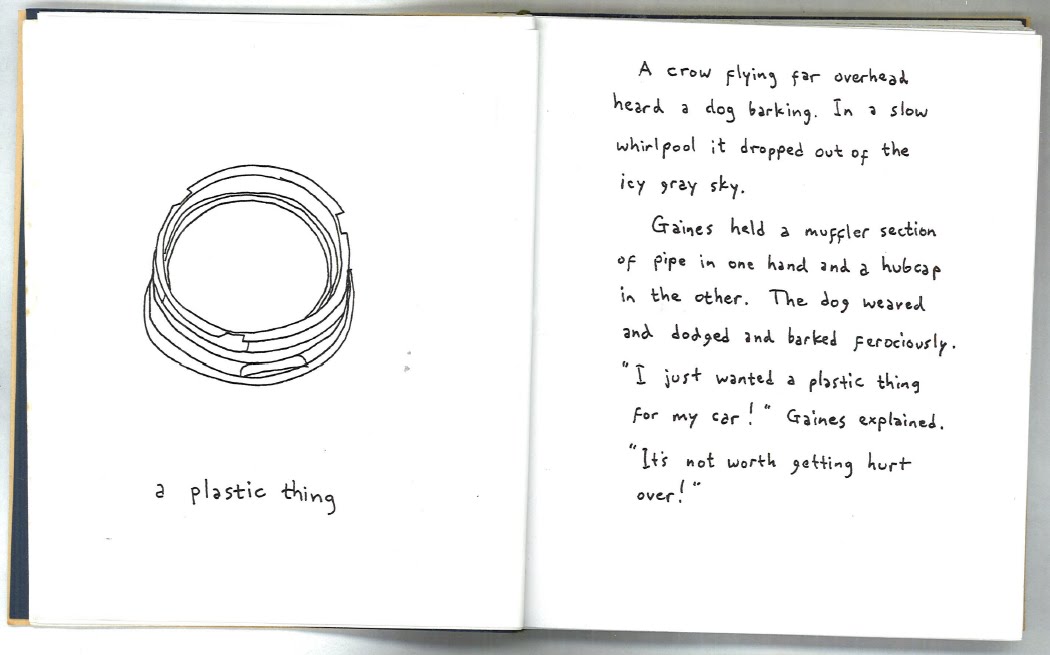 a plastic thing
A crow flying far overhead
heard a dog barking. In a slow
whirlpool it dropped out of the
icy gray sky.
Gaines held a muffler section
of pipe in one hand and a hubcap
in the other. The dog weaved
and dodged and barked ferociously.
"I just wanted a plastic thing
for my car!" Gaines explained.
"It's not worth getting hurt
over!"